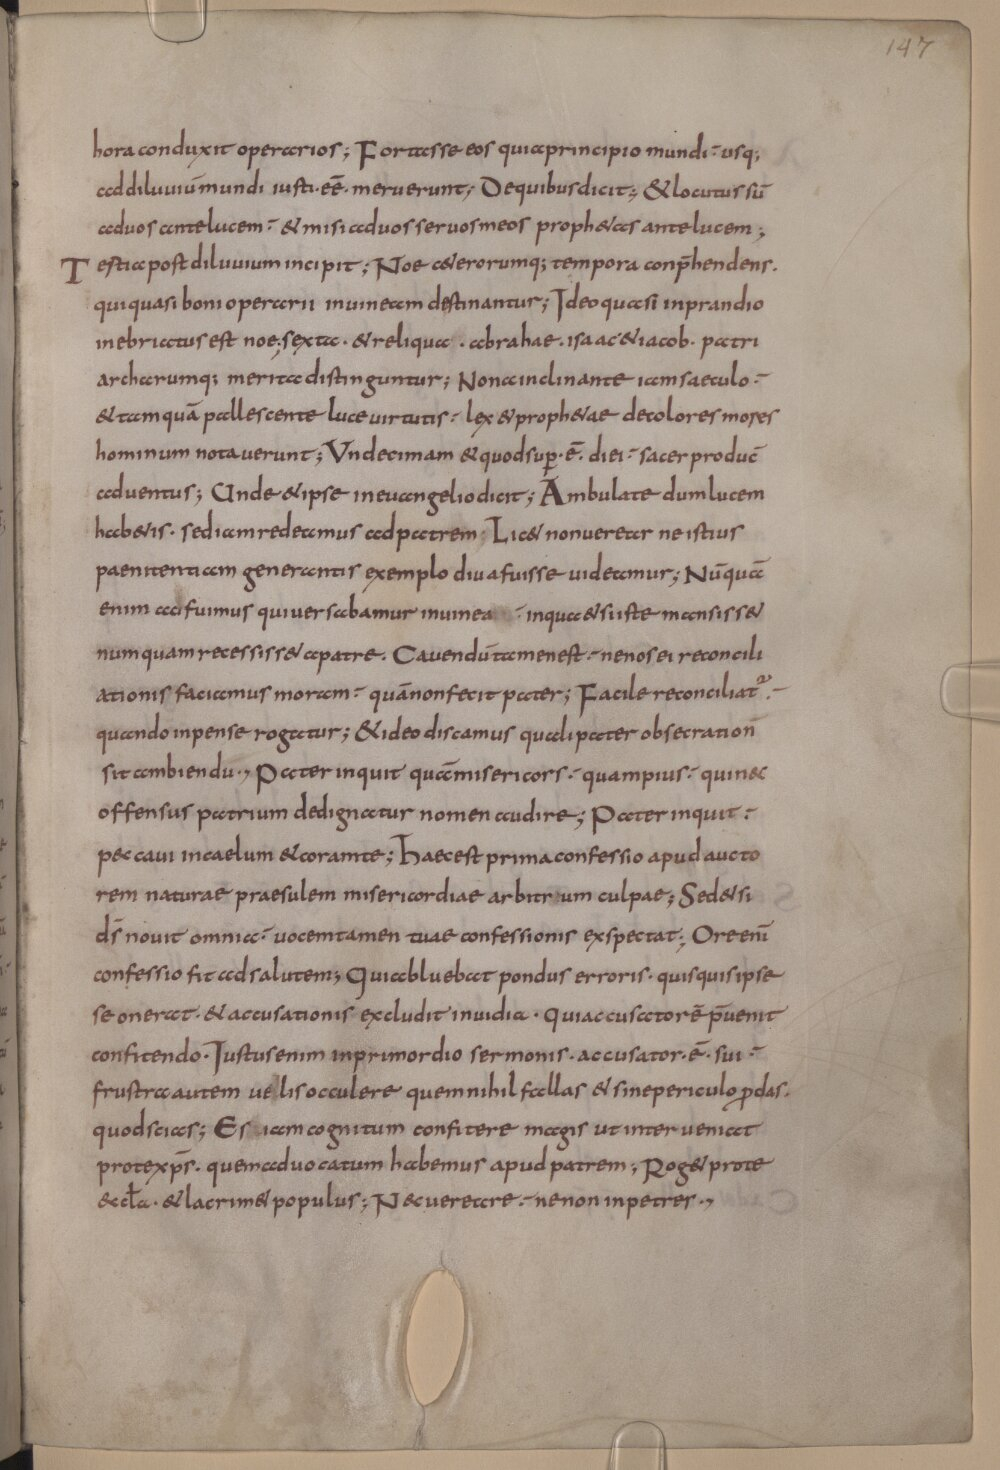 147
hora conduxit operarios; Fortasse eos qui a principio mundi usq;
ad diluuiū mundi iusti · eē · meruerunt; De quibus dicit; & locutus sū
ad uos ante lucem & misi ad uos seruos meos proph&as ante lucem;
Testia post diluuium incipit; Noe c&erorumq; tempora conp̄hendens.
qui quasi boni operarii in uineam destinantur; Ideo quasi in prandio
inebriatus est noe; sexta · & reliqua · abrahae · isaac & iacob · patri
archarumq; merita distinguntur; Nona inclinante iam saeculo
& tamquā pallescente luce uirtutis lex & proph&ae decolores moses
hominum notauerunt; Undecimam & quod sup · ē · diei sacer producē
aduentus; Unde & ipse in euangelio dicit; Ambulate dum lucem
hab&is · sed iam redeamus ad patrem; Lic& non uerear ne istius
paenitentiam generantis exemplo diu afuisse uideamur; Nūquā
enim afuimus qui uersabamur in uinea in qua & si iste mansiss&
numquam recessiss& a patre. Cauendū tamen est ne nos ei reconcili
ationis faciamus moram quā non fecit pater; Facile reconciliat᷑
quando inpense rogatur; & ideo discamus quali pater obsecration̄
sit ambiendu·, Pater inquit quā misericors quam pius qui nec
offensus patrium dedignatur nomen audire; Pater inquit
peccaui in caelum & coram te; Haec est prima confessio apud aucto
rem naturae praesulem misericordiae arbitrum culpae; Sed & si
dš nouit omnia uocem tamen tuae confessionis exspectat; Ore eni̅
confessio fit ad salutem; Quia abluebat pondus erroris · quisquis ipse
se onerat · & accusationis excludit inuidia · Qui accusatorē p̄uenit
confitendo · Iustus enim in primordio sermonis · accusator · ē · sui
frustra autem uelis occulere quem nihil fallas & sine periculo ꝓdas.
quod scias; Es iam cognitum confitere magis ut interueniat
pro te xp̄s · quem aduocatum habemus apud patrem; Rog& pro te
&cła · & lacrim& populus; Nec uereare ne non inpetres·,